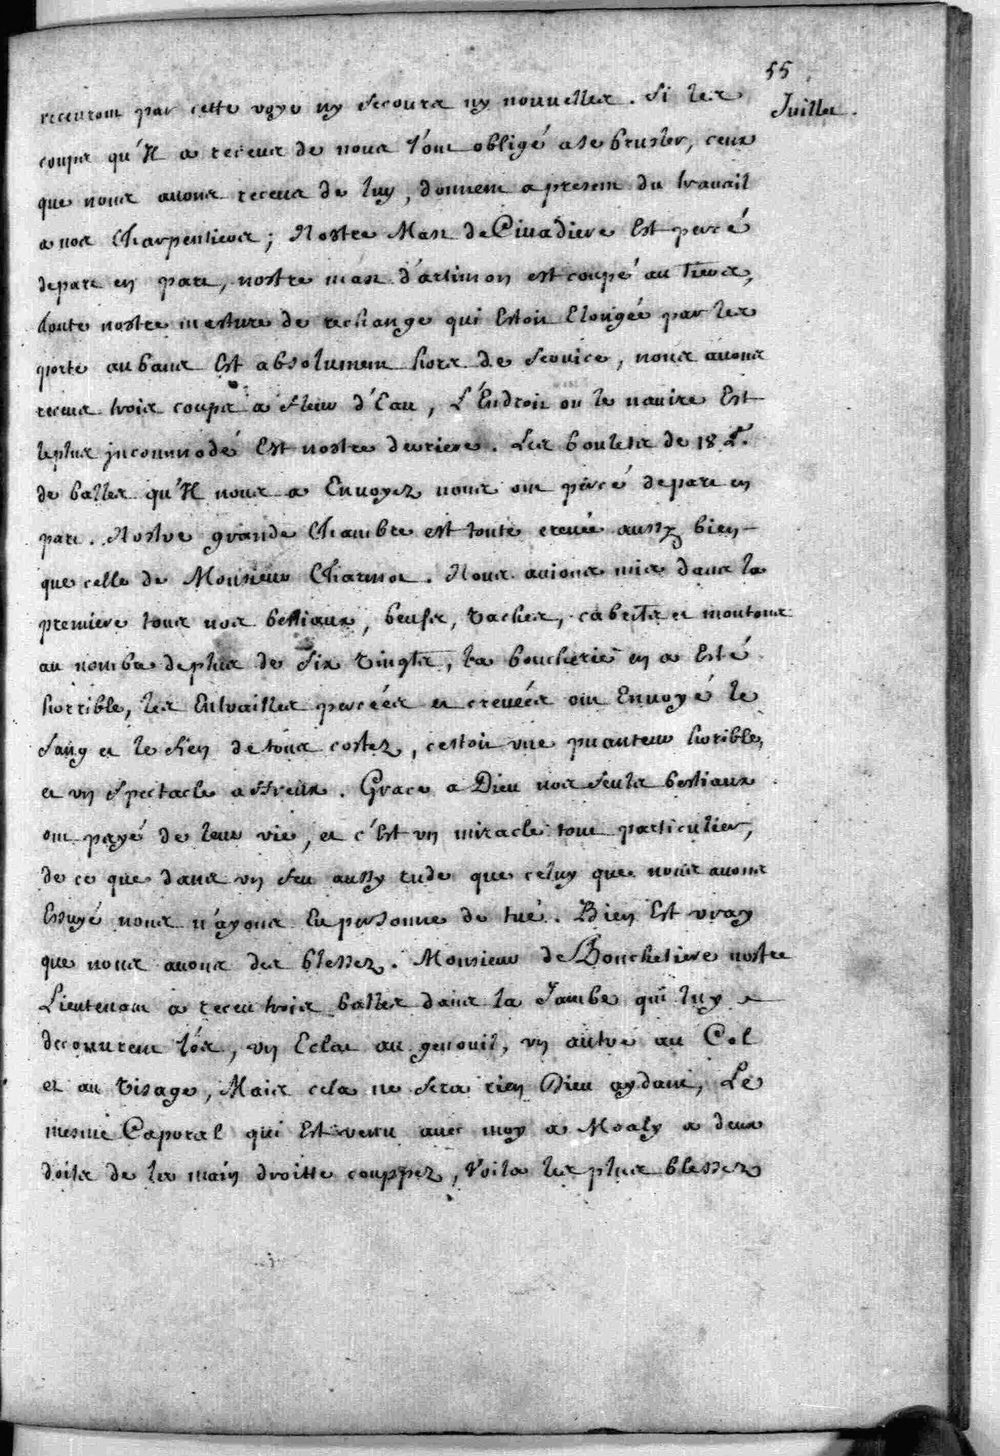 55
Juillet.
recevront par cette voye ny secours ny nouvelles. Si les
coups qu'Il a receus de nous l'ont obligé a se brusler, ceux
que nous avons receus de luy, donnent a present du travail
a nos Charpentiers; Nostre Mast de Civadiere Est percé
depart en part, nostre mast d'artimon est coupé au tiers,
toute nostre mesture de rechange qui Estoit Elongée par les
porte aubans Est absolument hors de service, nous avons
receus trois coups a fleur d'Eau, L'Endroit ou le navire Est
le plus jncommodé Est nostre derriere. Les boulets de 18 L.
de balles qu'Il nous a Envoyez nous ont percé depart en
part. Nostre grande Chambre est toute crevée aussy bien
que celle de Monsieur Charmot. Nous avions mis dans la
premiere tous nos bestiaux, beufs, vaches, cabrits et moutons
au nombre deplus de six vingts, la boucherie en a Esté
horrible, les Entrailles percées et crevées ont Envoyé le
sang et le fien de tous costez, cestoit une puanteur horible,
et un spectacle affreux. Grace a Dieu nos seuls bestiaux
ont payé de leur vie, et c'Est un miracle tout particulier,
de ce que dans un feu aussy rude que celuy que nous avons
Essuyé nous n'ayons Eu personne de tué. Bien Est vray
que nous avons des blessez. Monsieur de Boucheliere nostre
Lieutenant a receu trois balles dans la Jambe qui luy
decouvrent l'os, un Eclat au genouil, un autre au Col
et au visage, Mais cela ne sera rien Dieu aydant, Le
mesme Caporal qui Est venu avec moy a Moaly a deux
doits de la main droitte couppez, Voila les plus blessez